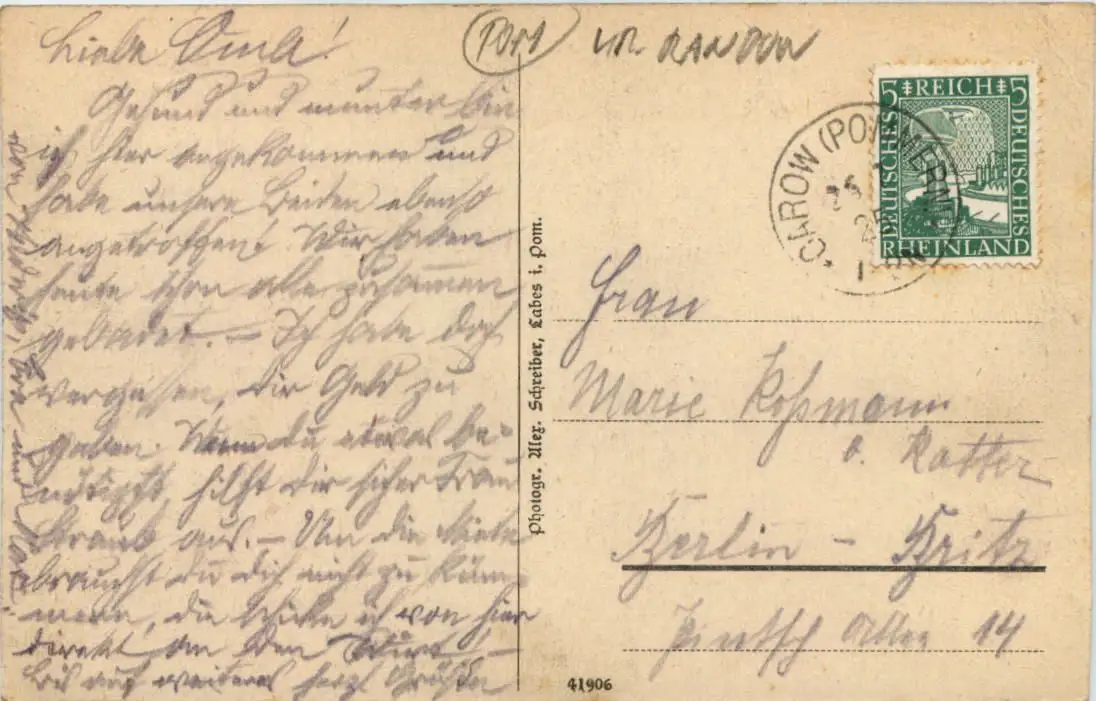 Liebe Oma!
Gesund und munter bin
ich hier angekommen und
habe unsere Beiden ebenso
angetroffen! Wir haben
heute schon alle zusammen
gebadet. – Ich habe doch
vergessen, dir Geld zu
geben. Wenn du etwas be-
nötigst, hilft dir sicher Frau
Straub aus. – Um die Miete
brauchst du dich nicht zu küm-
mern, die schicke ich von hier
direkt an den Wirt –
Bis auf weiteres herzl. Grüße
von
und
Port
KR. RANDOW
5 REICH 5
DEUTSCHES
DEUTSCHES
RHEINLAND
CAROW (POMMERN)
25
Photogr. Alex. Schreiber, Labes i. Pom.
Frau
Marie Roßmann
Berlin – Britz
Allee 14
41906